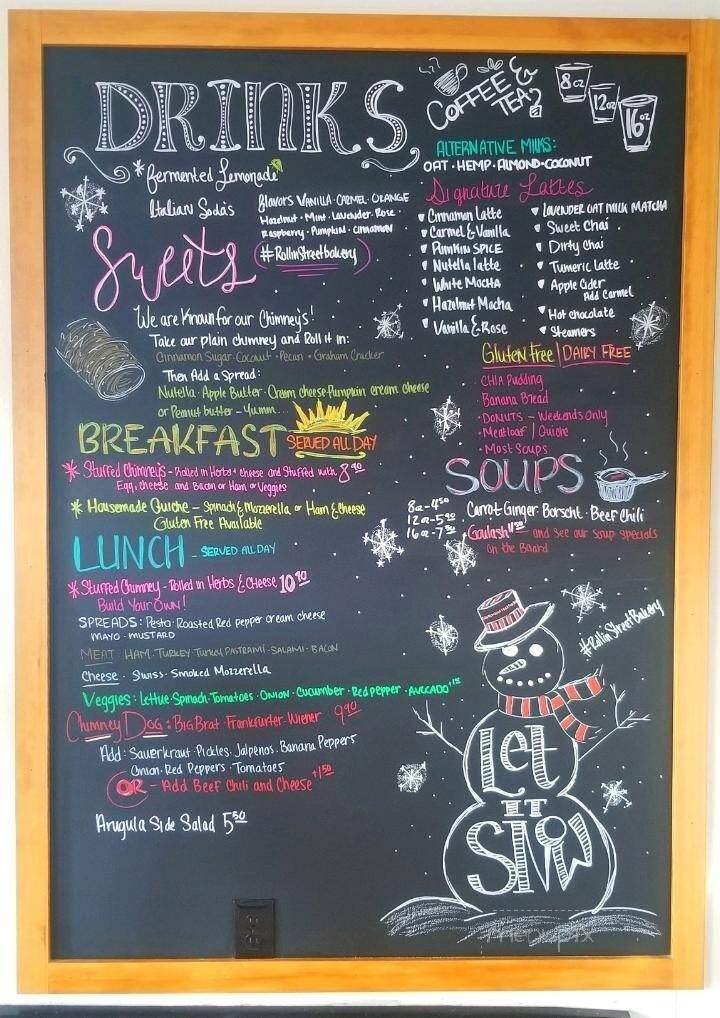 DRINKS
*fermented Lemonade
Italian Soda's
flavors VANILLA · CARMEL · ORANGE
Hazelnut · Mint · Lavender · Rose ·
Raspberry · Pumpkin · Cinnamon
#RollinStreetbakery
COFFEE &
TEA?
8oz
12oz
16oz
ALTERNATIVE MILKS:
OAT · HEMP · ALMOND · COCONUT
Signature Lattes
Cinnamon Latte
Carmel & Vanilla
PUMKIN SPICE
Nutella latte
White Mocha
Hazelnut Mocha
Vanilla & Rose
LAVENDER OAT MILK MATCHA
Sweet Chai
Dirty Chai
Tumeric Latte
Apple Cider
Add Carmel
Hot chocolate
Steamers
Sweets
We are Known for our Chimney's!
Take our plain chimney and Roll it in:
Cinnamon Sugar · Coconut · Pecan · Graham Cracker
Then Add a Spread:
Nutella · Apple Butter · Cream cheese · Pumpkin cream cheese
or Peanut butter - Yumm....
Gluten Free | DAIRY FREE
· CHIA Pudding
· Banana Bread
· DONUTS - Weekends Only
· Meatloaf / Quiche
· MOST SOUPS
BREAKFAST SERVED ALL DAY
* Stuffed Chimney's - Rolled in Herbs & Cheese and Stuffed with 8.90
Egg, cheese and Bacon or Ham or Veggies
* Housemade Quiche - Spinach & Mozzerella or Ham & Cheese
Gluten Free Available
SOUPS
8oz - 4.50
12oz - 5.90
16oz - 7.50
Carrot Ginger · Borscht · Beef Chili
Goulash and See our Soup Specials
on the Board
LUNCH - SERVED ALL DAY
* Stuffed Chimney - Rolled in Herbs & Cheese 10.90
Build Your Own!
SPREADS: Pesto · Roasted Red pepper cream cheese
MAYO · MUSTARD
MEAT: HAM · TURKEY · Turkey PASTRAMI · SALAMI · BACON
Cheese · Swiss · Smoked Mozzerella
Veggies: Lettuce · Spinach · Tomatoes · Onion · Cucumber · Red pepper · AVACADO
Chimney Dog: Big Brat · Frankfurter · Wiener 9.90
Add: Sauerkraut · Pickles · Jalpenos · Banana Peppers
Onion · Red Peppers · Tomatoes
OR - Add Beef Chili and Cheese +1.50
Arugula Side Salad 5.50
#RollinStreetBakery
Let
IT
SNOW
menupix